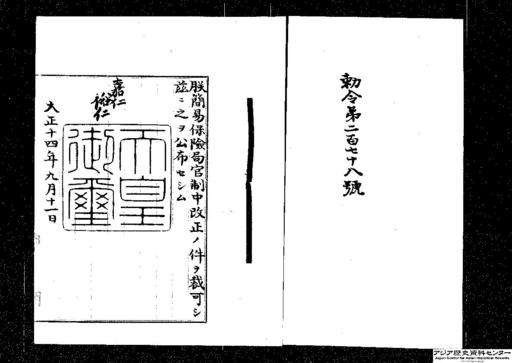 勅令第二百七十八號
朕簡易保險局官制中改正ノ件ヲ裁可シ
茲ニ之ヲ公布セシム
嘉仁
裕仁
天皇
御璽
大正十四年九月十一日
アジア歴史資料センター
Japan Center for Asian Historical Records